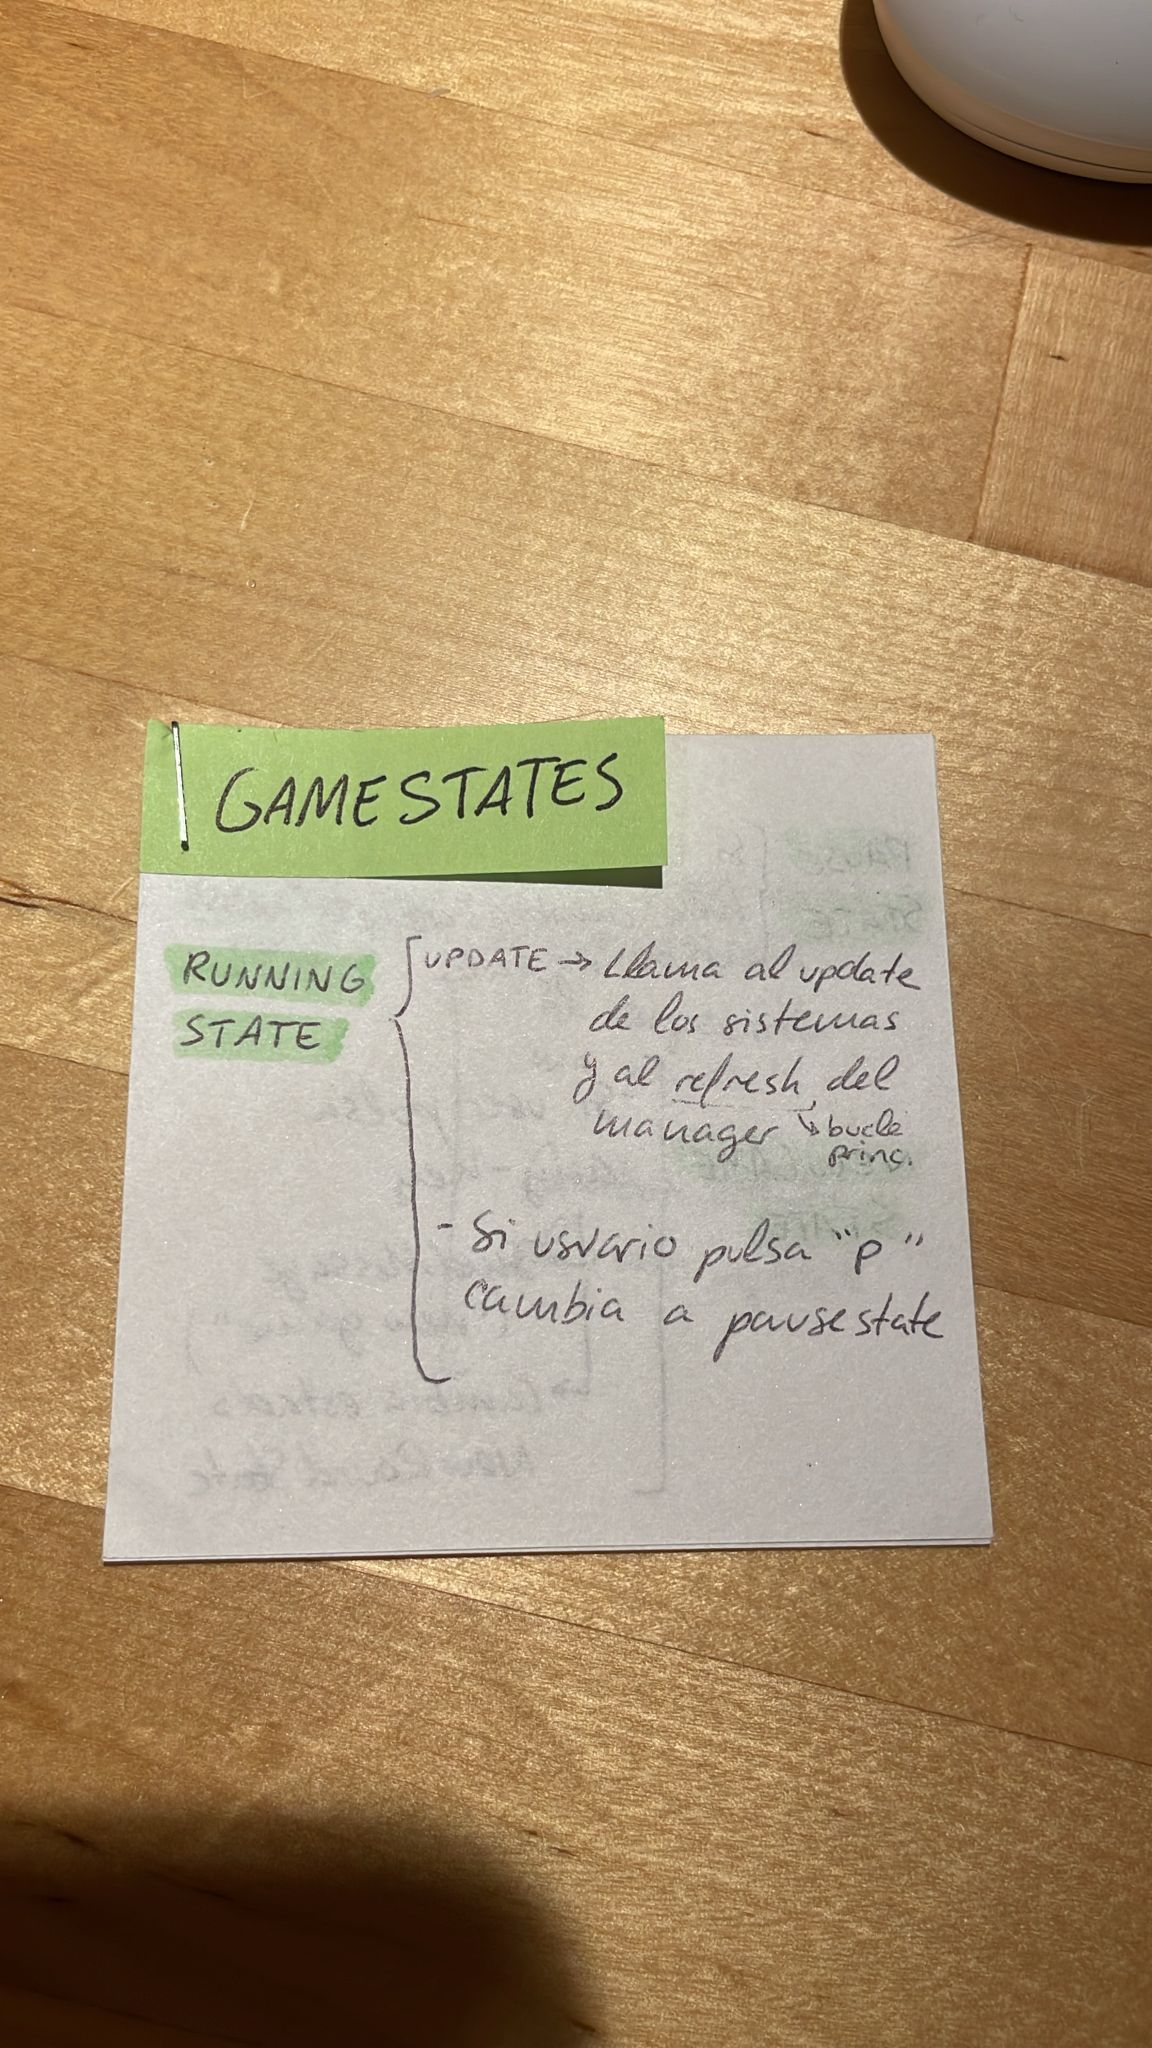 GAMESTATES
RUNNING
STATE
UPDATE → Llama al update
de los sistemas
y al refresh del
manager ↳ bucle
princ.
- Si usuario pulsa "p"
cambia a pausestate